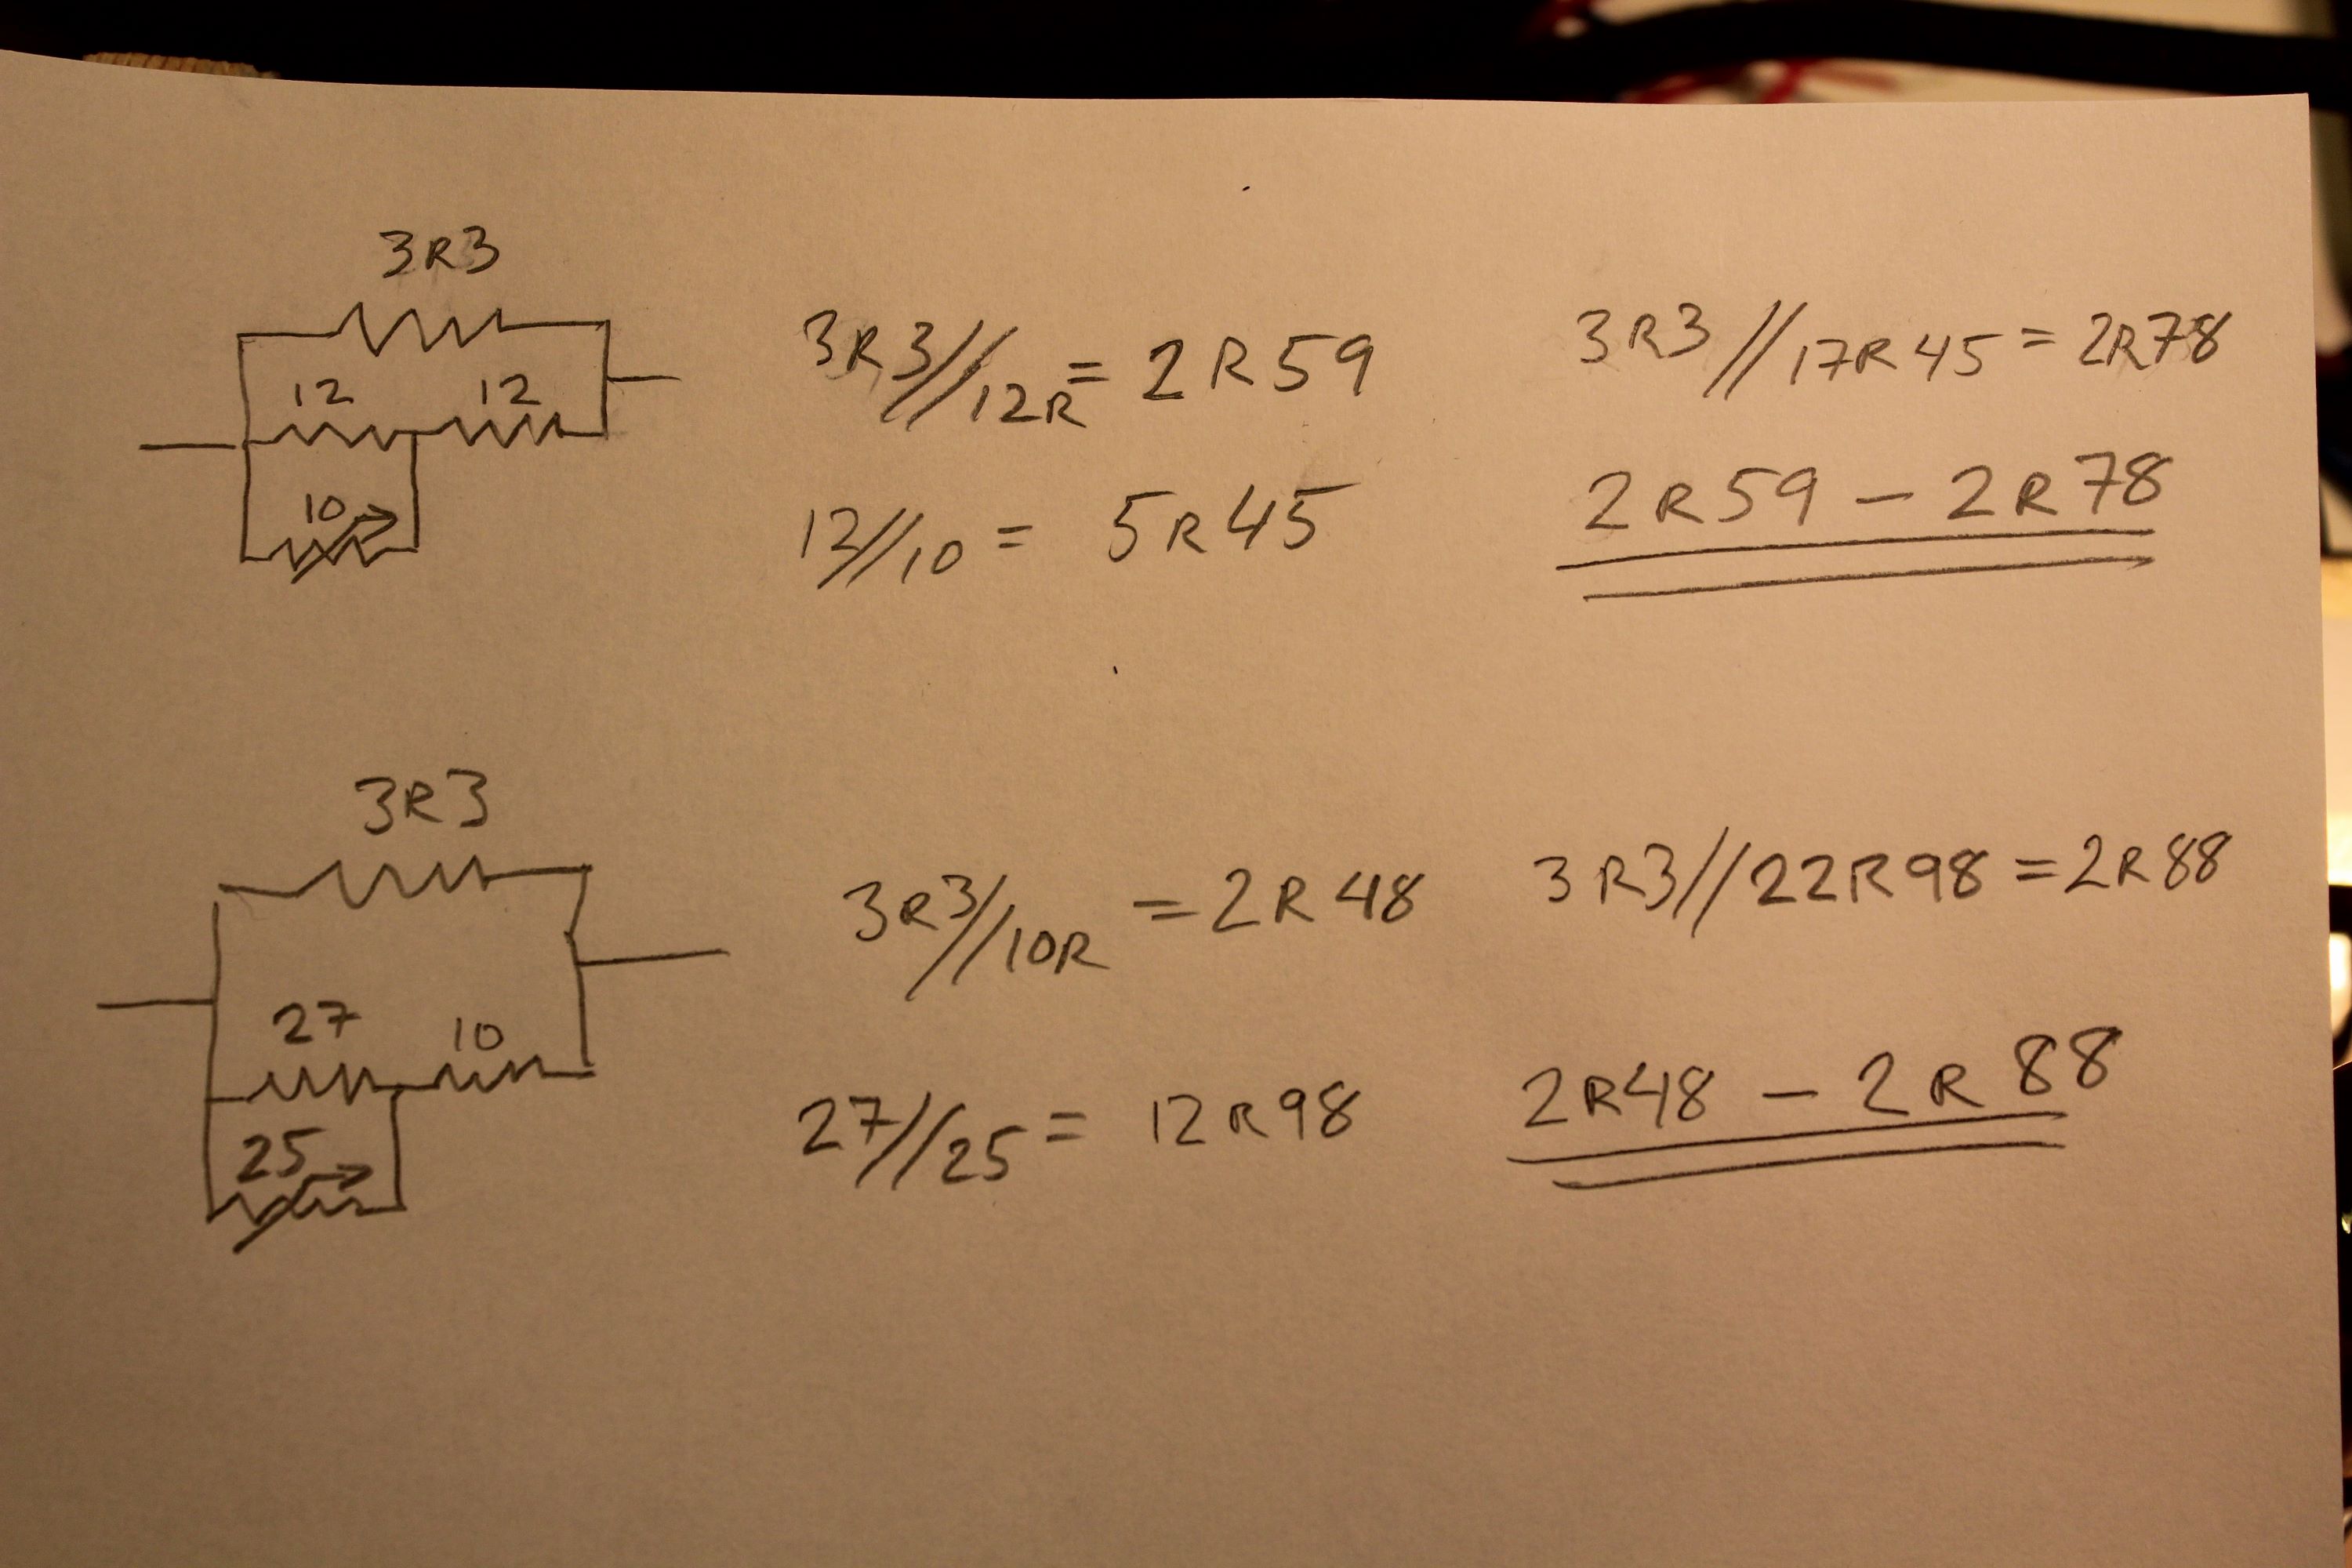 3R3
12 12
10
3R3//12R = 2R59
12//10 = 5R45
3R3//17R45 = 2R78
2R59 – 2R78
3R3
27 10
25
3R3//10R = 2R48
27//25 = 12R98
3R3//22R98 = 2R88
2R48 – 2R88